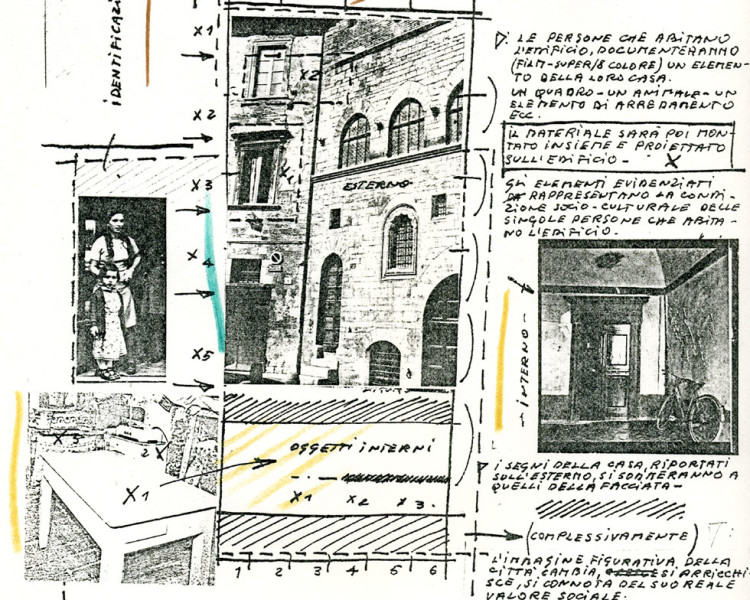 IDENTIFICAZI
X1
X2
X3
X4
X5
X2
X1
ESTERNO
LE PERSONE CHE ABITANO
L'EDIFICIO, DOCUMENTERANNO
(FILM-SUPER/8 COLORE) UN ELEMEN-
TO DELLA LORO CASA.
UN QUADRO-UN ANIMALE-UN
ELEMENTO DI ARREDAMENTO
ECC.
IL MATERIALE SARÀ POI MON-
TATO INSIEME E PROIETTATO
SULL'EDIFICIO- X
GLI ELEMENTI EVIDENZIATI
RAPPRESENTANO LA CONDI-
ZIONE SOCIO-CULTURALE DELLE
SINGOLE PERSONE CHE ABITA-
NO L'EDIFICIO.
-INTERNO-
X3
2X
X1
OGGETTI INTERNI
X1 X2 X3.
1 2 3 4 5 6
I SEGNI DELLA CASA, RIPORTATI
SULL'ESTERNO, SI SOMMERANNO A
QUELLI DELLA FACCIATA-
(COMPLESSIVAMENTE)
L'IMMAGINE FIGURATIVA DELLA
CITTÀ CAMBIA, SI ARRICCHI
SCE, SI CONNOTA DEL SUO REALE
VALORE SOCIALE.